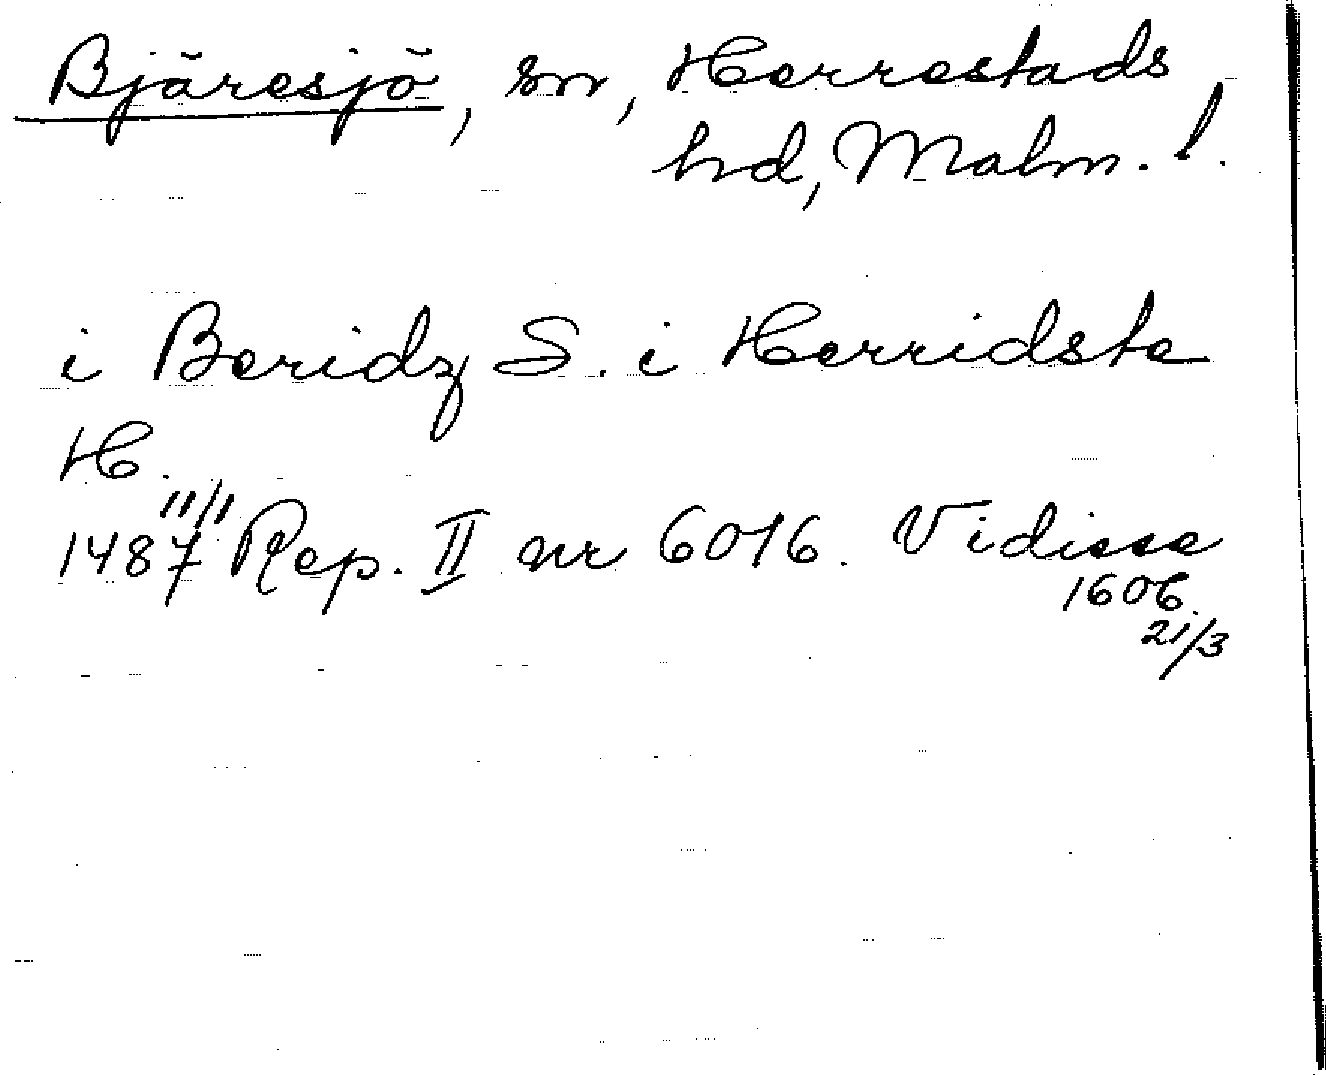 Bjäresjö, sn, Herrestads
hd, Malm. l.
i Beridz S. i Herridste
H.
1487 11/11 Rep. II nr 6016. Vidisse
1606.
21/3